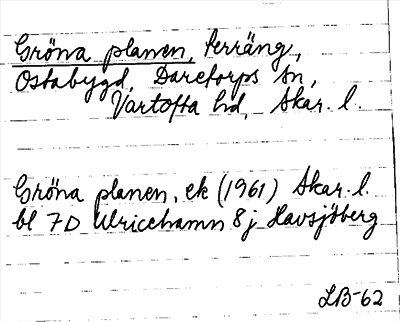 Gröna planen, terräng,
Ostabygd, Daretorps sn,
Vartofta hd, Skar. l.
Gröna planen, ek (1961) Skar. l.
bl 7D Ulricehamn 8j Havsjöberg
LB-62